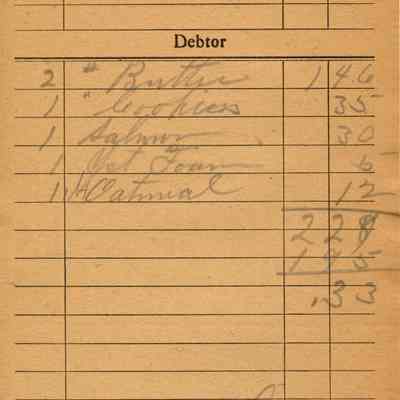 Debtor
2 # Butter 1 46
1 " Cookies 35
1 Salmon 30
1 5
1 # Oatmeal 12
2 28
1 95
.33